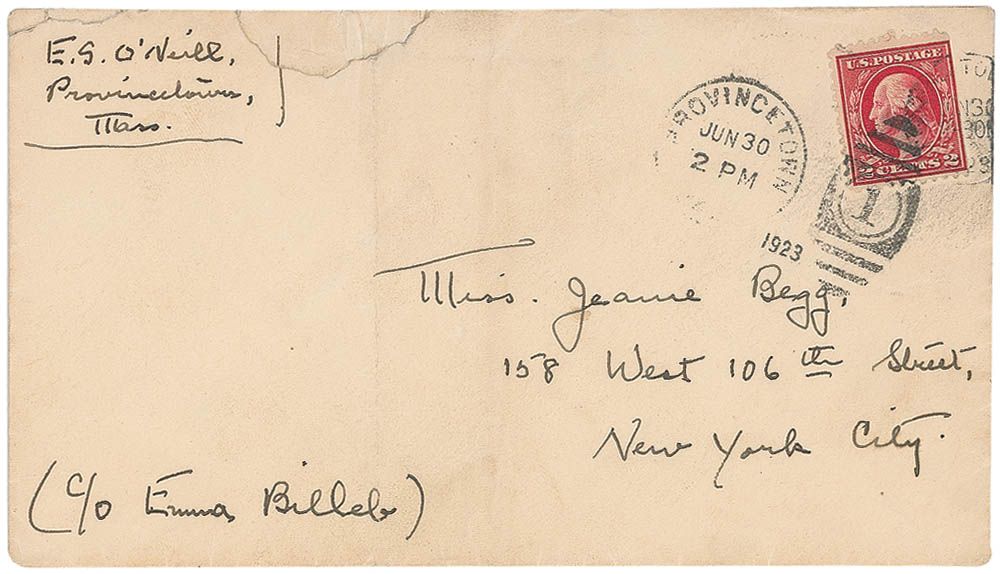 E.G. O'Neill,
Provincetown,
Mass.
PROVINCETOWN
JUN 30
2 PM
1923
U.S. POSTAGE
2 CENTS 2
1
Miss. Jeanie Begg,
158 West 106th Street,
New York City.
(c/o Emma Billeb)